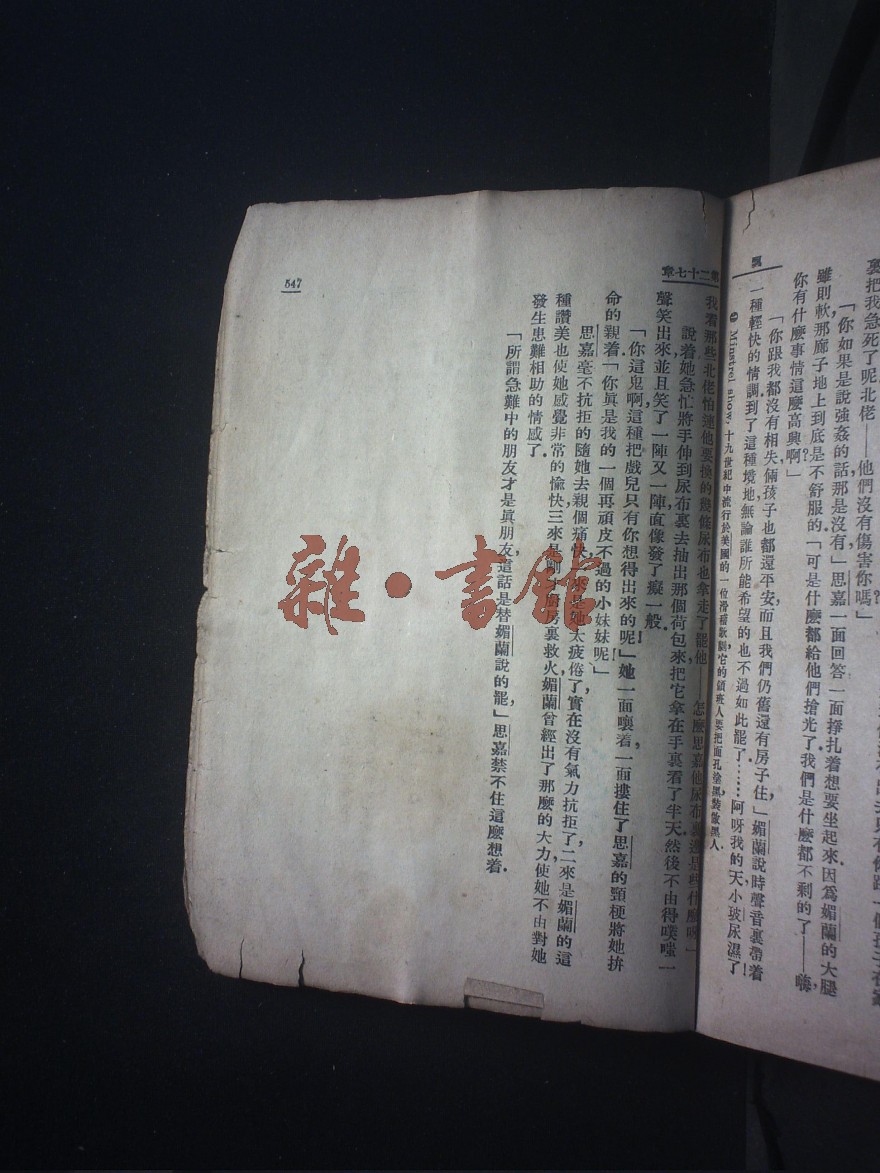 飄
裏把我急死了呢北佬——他們沒有傷害你嗎?」
「你如果是說強姦的話那是沒有,」思嘉一面回答一面掙扎着想要坐起來.因爲媚蘭的大腿
雖則軟,那廊子地上到底是不舒服的.「可是什麽都給他們搶光了.我們是什麽都不剩的了——嗨,
你有什麽事情這麽高興啊?」
「你跟我都沒有相失,倆孩子也都還平安,而且我們仍舊還有房子住,」媚蘭說時聲音裏帶着
一種輕快的情調.「到了這種境地,無論誰所能希望的也不過如此罷了……阿呀我的天,小玻尿濕了!
Minstrel show, 十九世紀中流行於美國的一位滑稽歌劇,它的領班人要把面孔塗黑,裝做黑人.
第二十七章
我看那些北佬怕連他要換的幾條尿布也拿走了罷.他——怎麽,思嘉,他尿布裏邊是些什麽呀?」
說着她急忙將手伸到尿布裏去,抽出那個荷包來.把它拿在手裏看了半天,然後不由得噗嗤一
聲笑出來,並且笑了一陣又一陣,直像發了癡一般.
「你這鬼啊,這種把戲兒只有你想得出來的呢!」她一面嚷着,一面摟住了思嘉的頸梗,將她拚
命的親着.「你眞是我的一個再頑皮不過的小妹妹呢!」
思嘉毫不抗拒的隨她去親個痛快,一來是她太疲倦了,實在沒有氣力抗拒了,二來是媚蘭的這
種讚美也使她感覺非常的愉快,三來是剛才廚房裏救火,媚蘭曾經出了那麽的大力,使她不由對她
發生患難相助的情感了.
「所謂急難中的朋友才是眞朋友,這話是替媚蘭說的罷,」思嘉禁不住這麽想着.
547
雜·書館